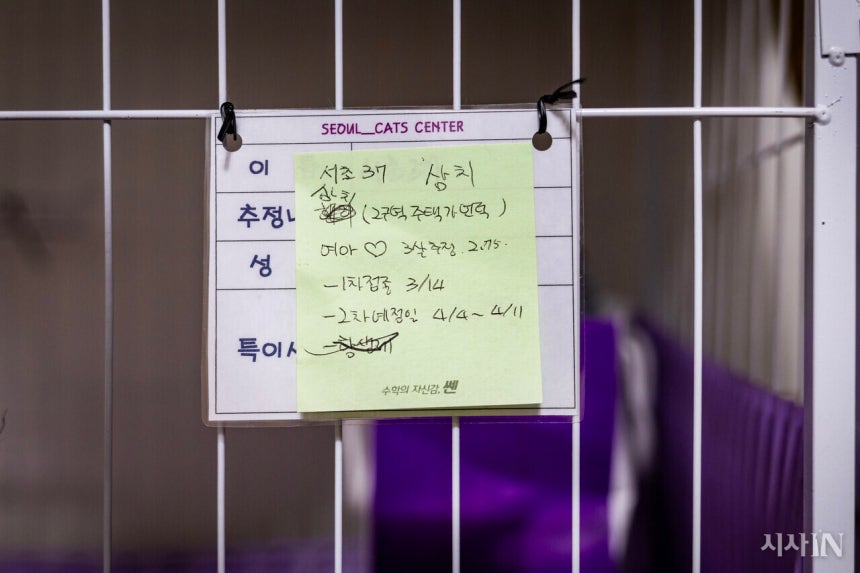 SEOUL_CATS CENTER
이
추정
성
특이
서초 37 '삼치
삼치
(2구역 주택가 언덕)
여아 ♡ 3살추정 2.75.
-1차접종 3/14
-2차예정일 4/4~4/11
-항생제
수학의 자신감, 쎈
시사IN